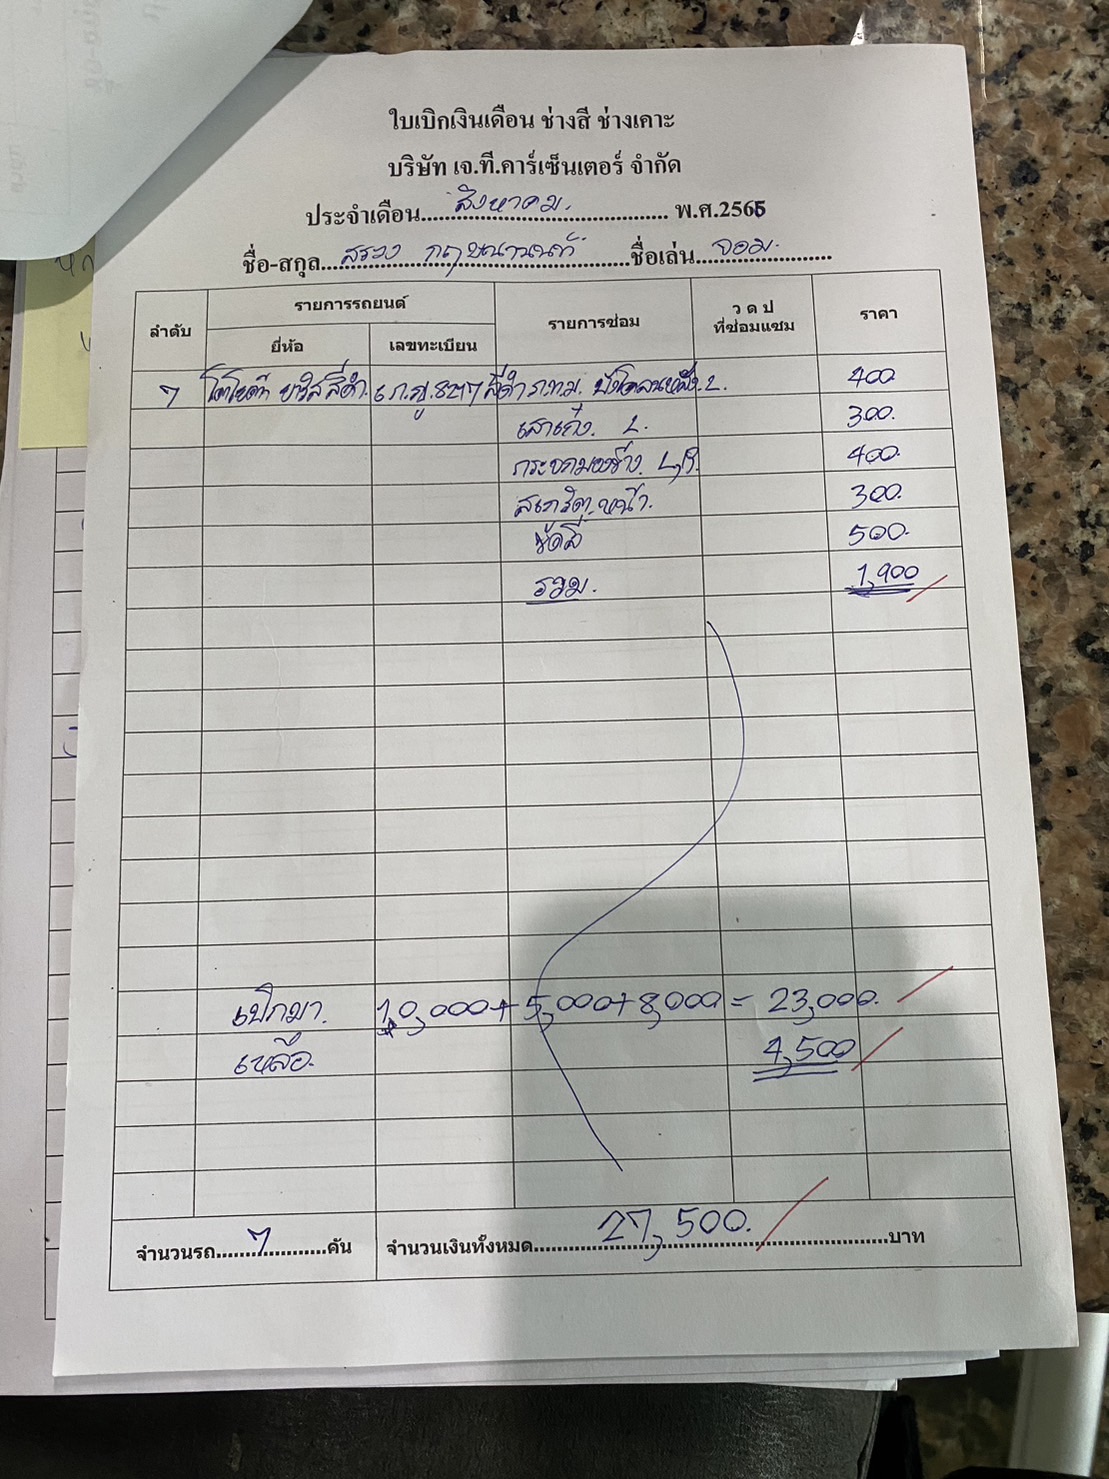 ใบเบิกเงินเดือน ช่างสี ช่างเคาะ
บริษัท เจ.ที.คาร์เซ็นเตอร์ จำกัด
ประจำเดือน สิงหาคม. พ.ศ.2565
ชื่อ-สกุล กฤษณานนท์ ชื่อเล่น จอม.
ลำดับ รายการรถยนต์ รายการซ่อม ว ด ป ที่ซ่อมแซม ราคา
ยี่ห้อ เลขทะเบียน
7 โตโยต้า ยาริส สีดำ. กทม. บังโคลนหลัง L. 400.
เสาเก๋ง. L. 300.
กระจกมองข้าง. L,R. 400.
สเกิร์ต.หน้า. 300.
ขัดสี 500.
รวม. 1,900
เบิกมา. 10,000+5,000+8,000= 23,000.
เหลือ. 4,500
จำนวนรถ 7 คัน จำนวนเงินทั้งหมด 27,500. บาท